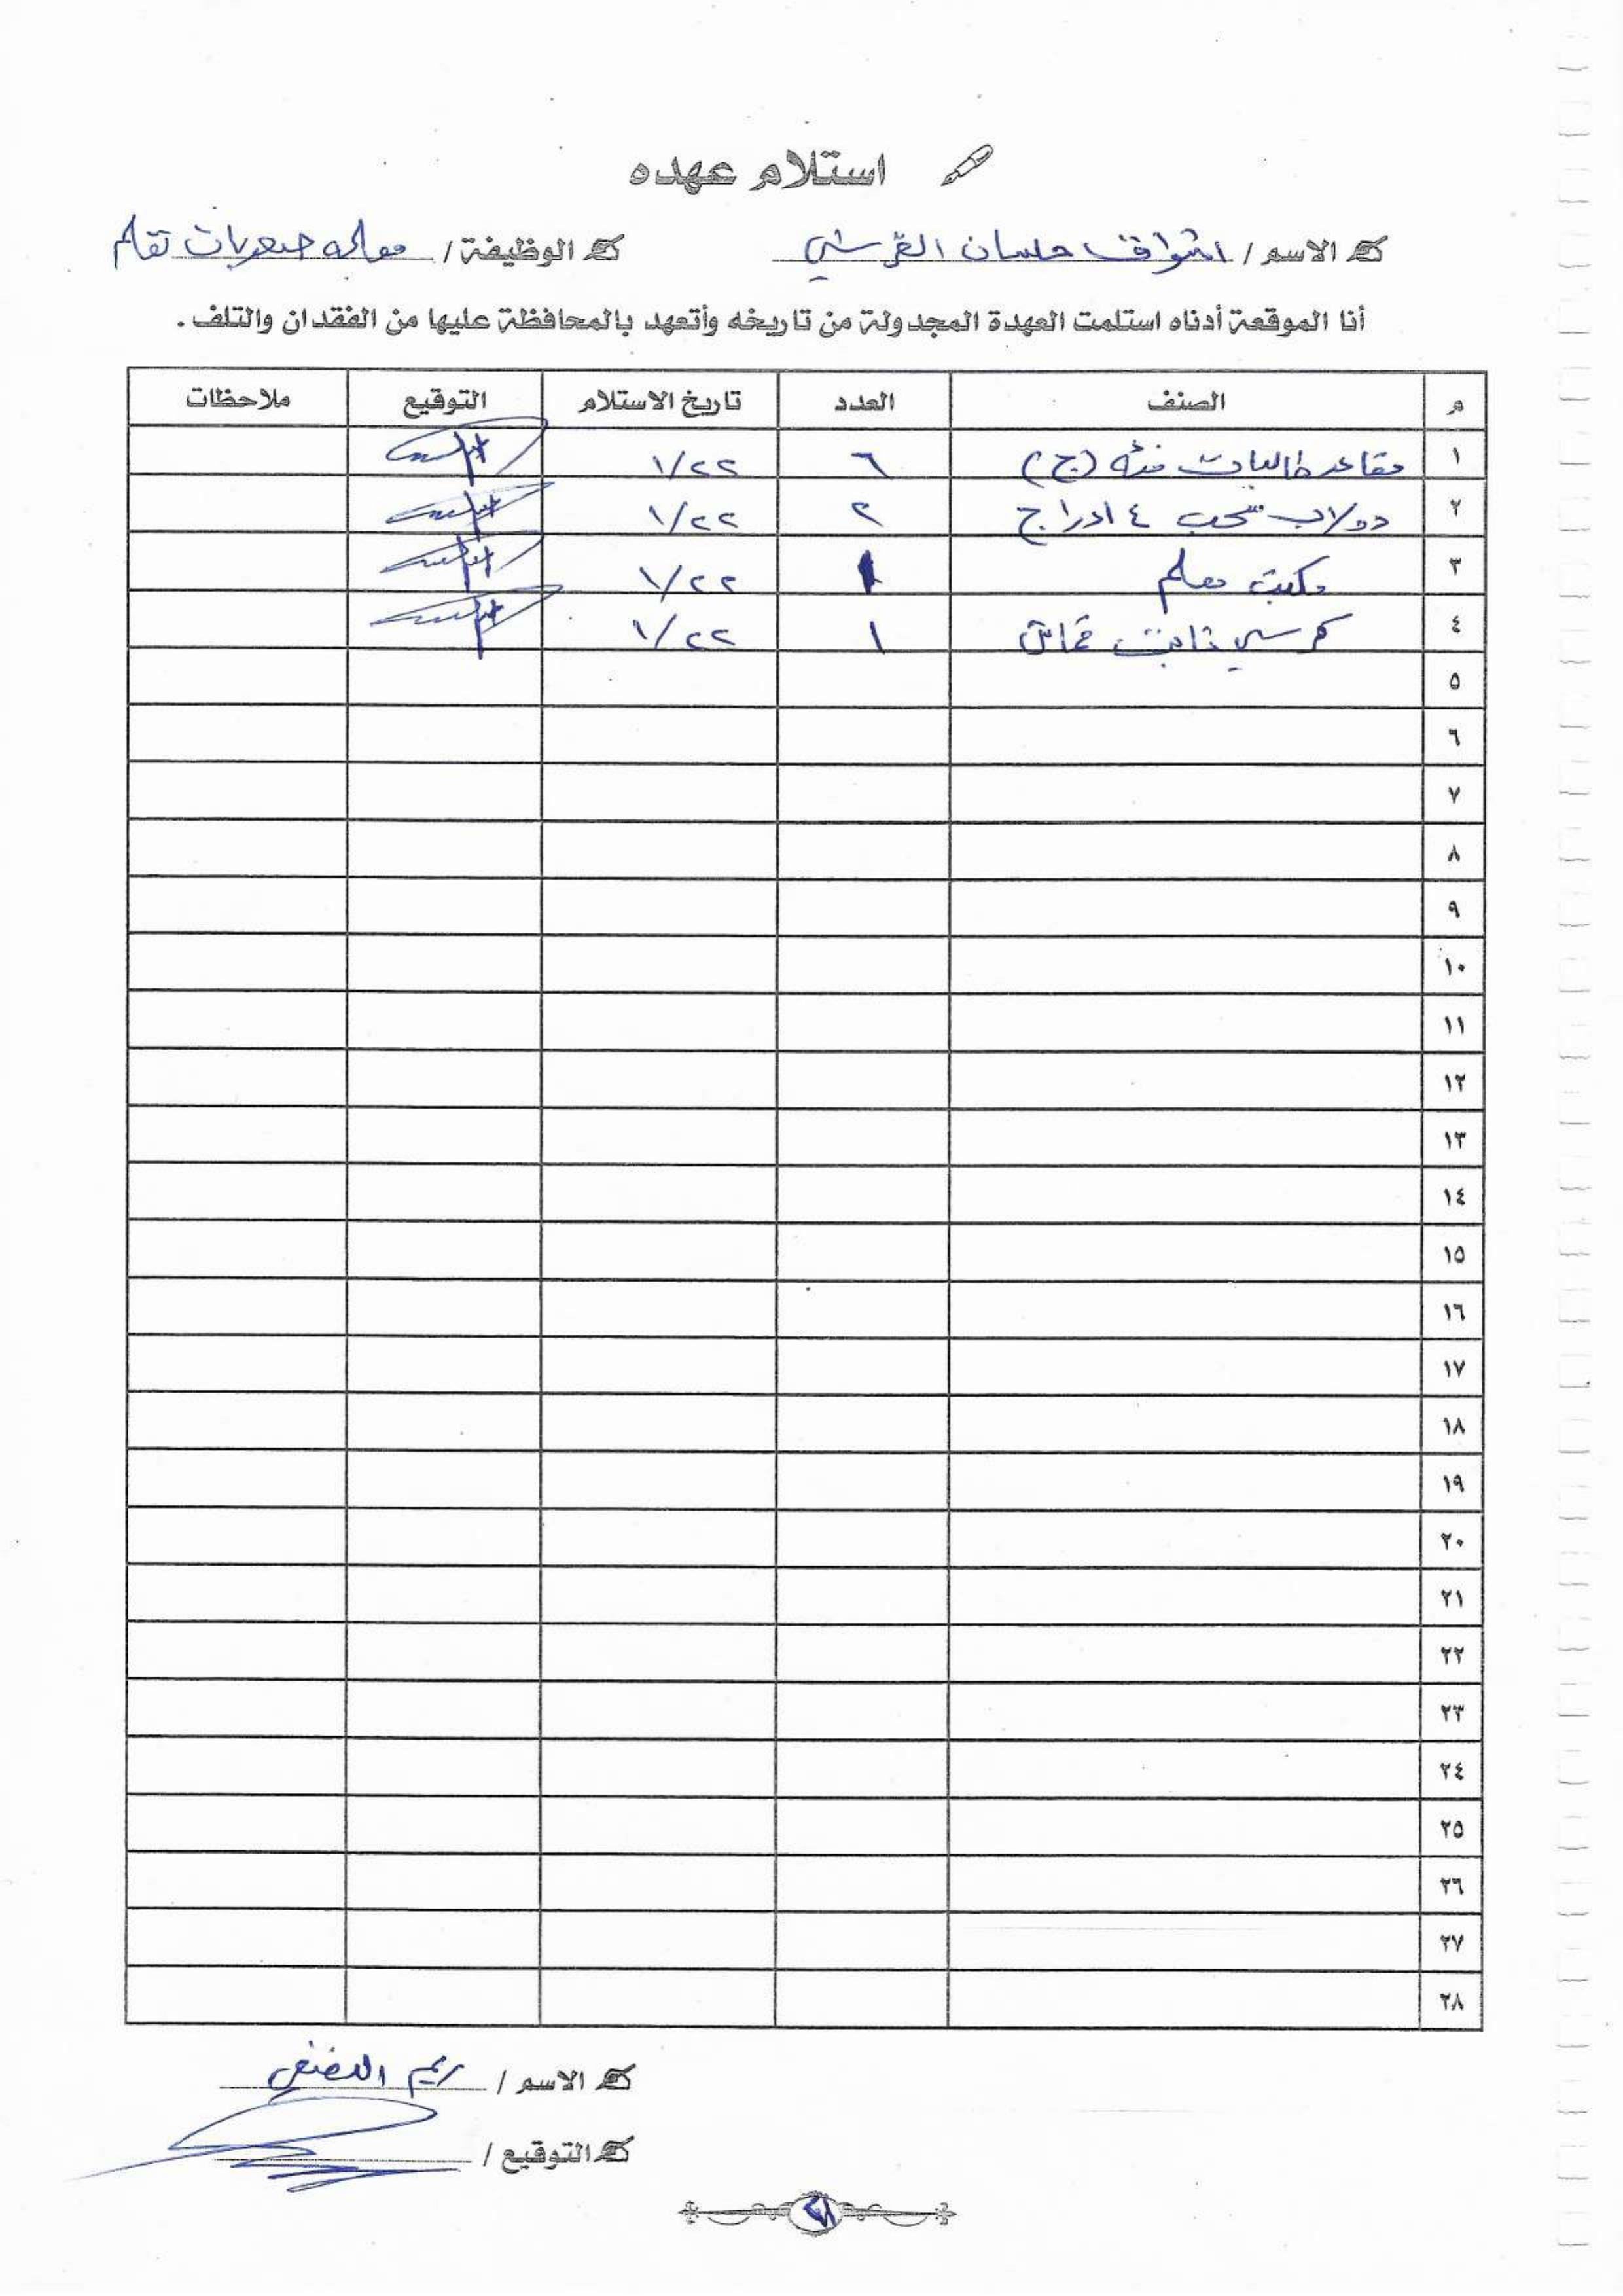 استلام عهده
الاسم / اشواق حسان القرشي الوظيفة / معلمه صعوبات تعلم
أنا الموقعة أدناه استلمت العهدة المجدولة من تاريخه وأتعهد بالمحافظة عليها من الفقدان والتلف .
م الصنف العدد تاريخ الاستلام التوقيع ملاحظات
١ مقاعد طالبات فئه (ج) ٦ ١/٢٢
٢ دولاب سحب ٤ ادراج ٢ ١/٢٢
٣ مكتب معلم ١ ١/٢٢
٤ كرسي ثابت قماش ١ ١/٢٢
٥
٦
٧
٨
٩
١٠
١١
١٢
١٣
١٤
١٥
١٦
١٧
١٨
١٩
٢٠
٢١
٢٢
٢٣
٢٤
٢٥
٢٦
٢٧
٢٨
الاسم / ريم
التوقيع /